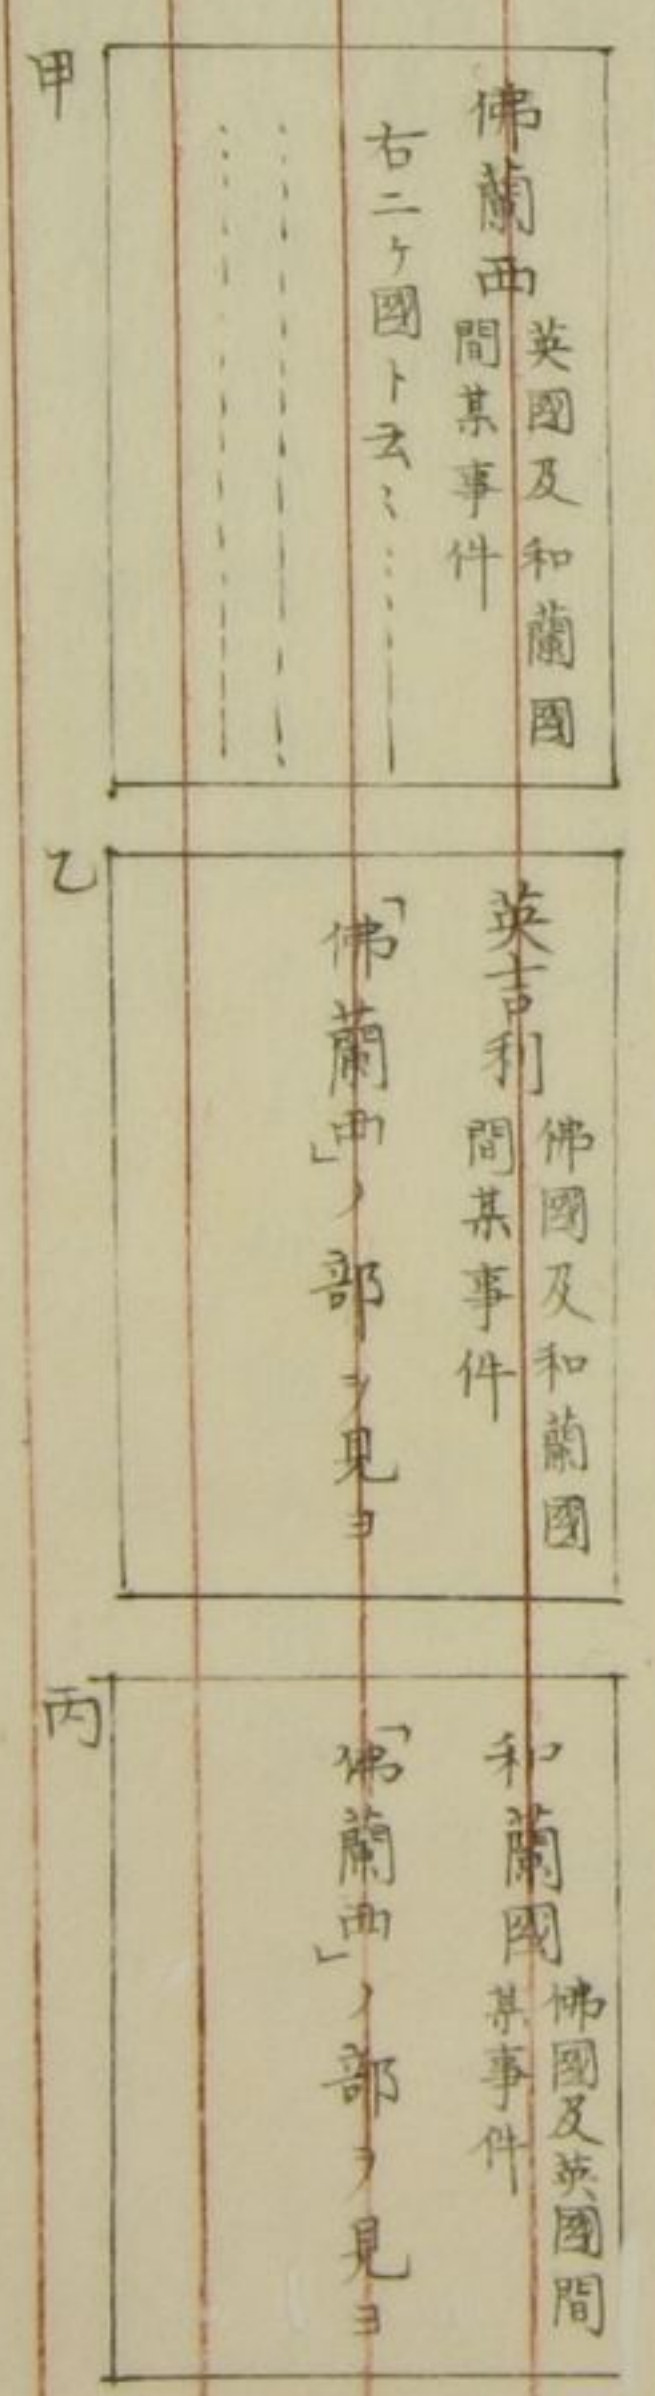 甲
佛蘭西
英國及和蘭國
間某事件
右二ヶ國ト云々
乙
英吉利
佛國及和蘭國
間某事件
「佛蘭西」ノ部ヲ見ヨ
丙
和蘭國
佛國及英國間
某事件
「佛蘭西」ノ部ヲ見ヨ